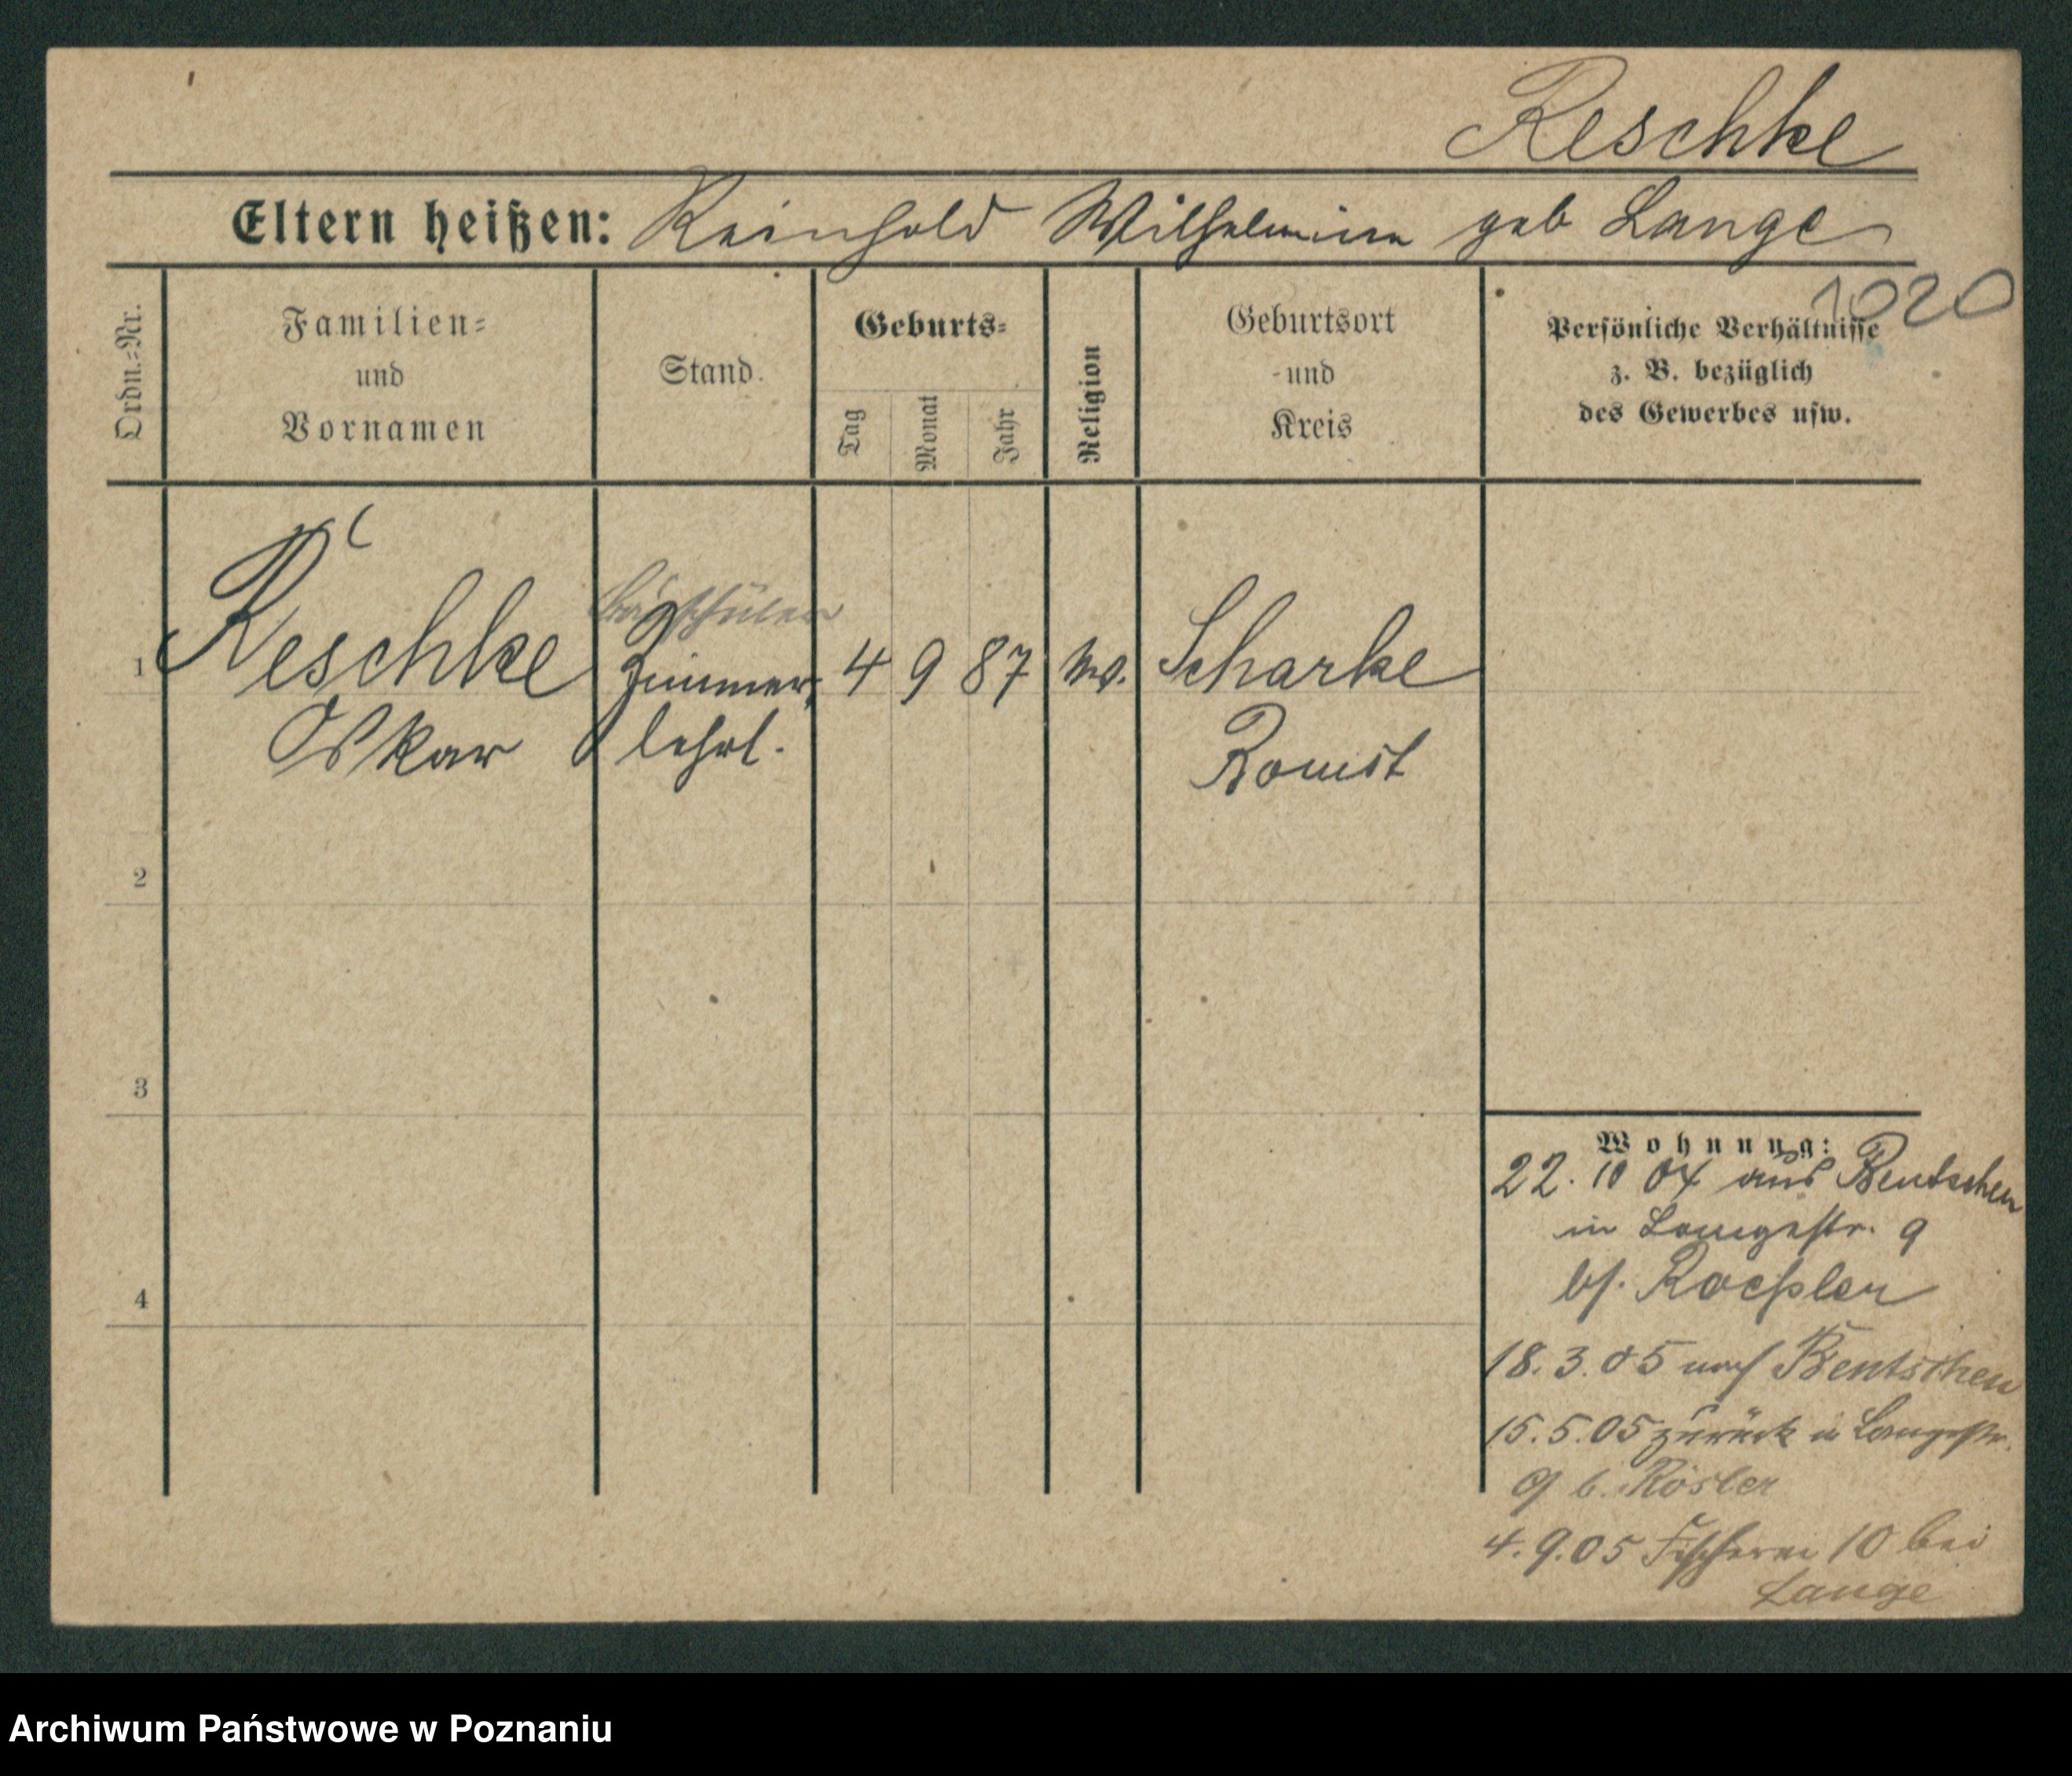 Reschke
Eltern heißen: Reinhold Wilhelmine geb Lange
1020
Ordn.=Nr.
Familien=
und
Vornamen
Stand.
Geburts=
Tag
Monat
Jahr
Religion
Geburtsort
und
Kreis
Persönliche Verhältnisse
z. B. bezüglich
des Gewerbes usw.
1 Reschke Zimmer= 4 9 87 Scharke
Oskar lehrl. Bomst
2
3
4
Wohnung:
22. 10 04 aus Bentschen
in Langestr. 9
bf. Roeßler
18. 3. 05 nach Bentschen
15. 5. 05 zurück in Langestr.
9 b. Rösler
4. 9. 05 Fischerei 10 bei
Lange
Archiwum Państwowe w Poznaniu